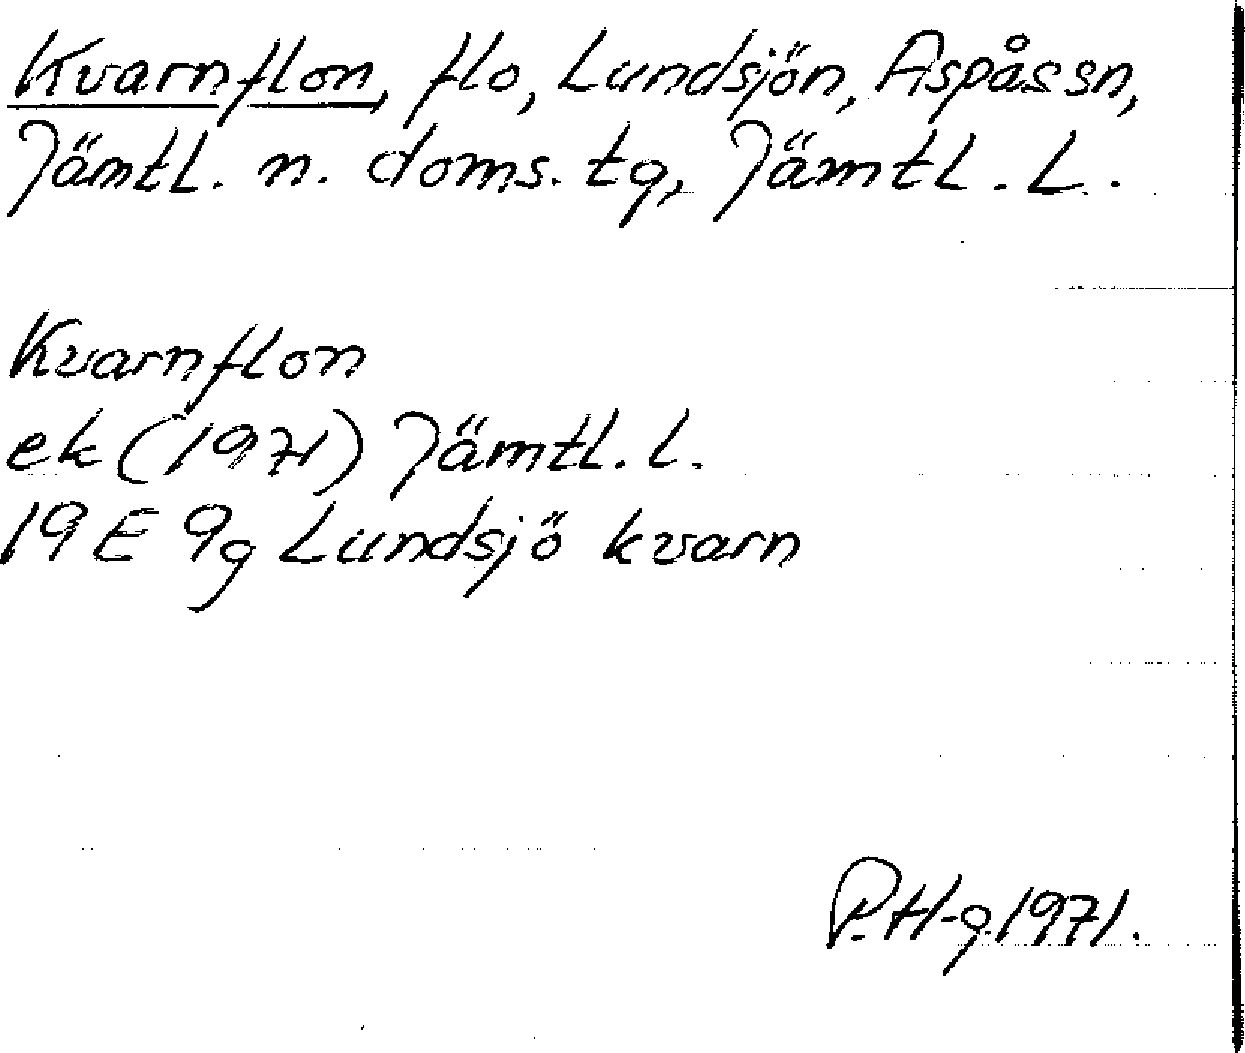 Kvarnflon, flo, Lundsjön, Aspås sn,
Jämtl. n. doms. tg, Jämtl. L.
Kvarnflon
ek (1971) Jämtl. l.
19 E 9g Lundsjö kvarn
P. H-g. 1971.